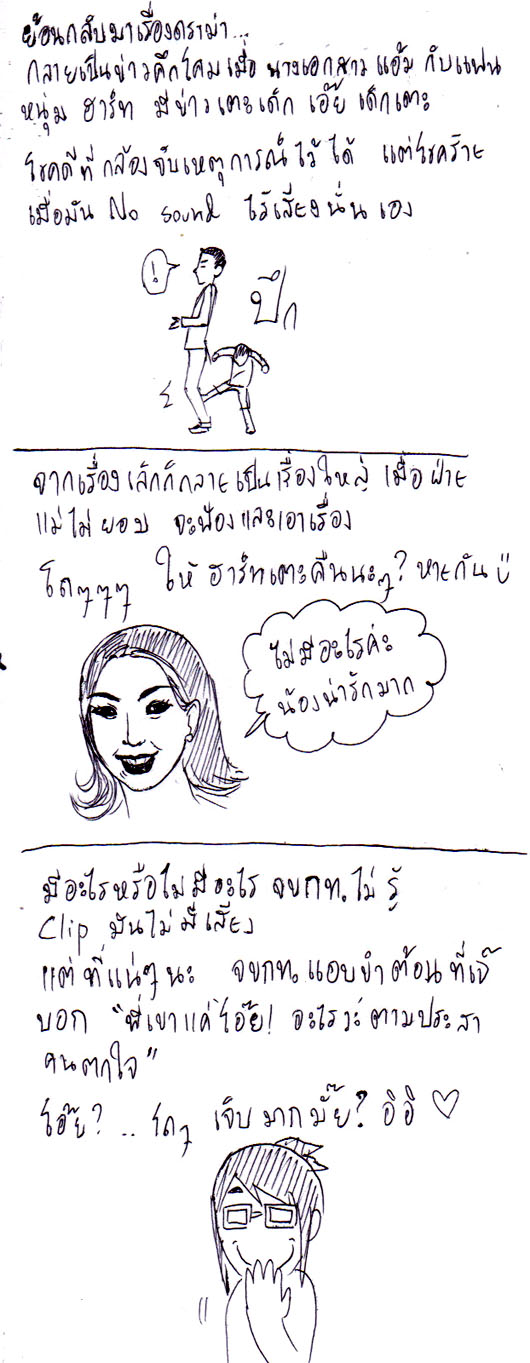 ย้อนกลับมาเรื่องดราม่า...
กลายเป็นข่าวคึกโคม เมื่อ นางเอกสาว แอ้ม กับแฟน
หนุ่ม ฮาร์ท มีข่าว เตะเด็ก เอ๊ย เด็กเตะ
โชคดีที่ กล้องจับเหตุการณ์ไว้ได้ แต่โชคร้าย
เมื่อมัน No sound ไร้เสียงนั่นเอง
!
ปึก
จากเรื่องเล็กก็กลายเป็นเรื่องใหญ่ เมื่อ ฝ่าย
แม่ไม่ยอม จะฟ้องและเอาเรื่อง
โถๆๆๆ ให้ ฮาร์ทเตะคืนนะๆ? หายกัน
ไม่มีอะไรค่ะ
น้องน่ารักมาก
มีอะไรหรือไม่มีอะไร จขกท.ไม่รู้
Clip มันไม่มีเสียง
แต่ ที่แน่ๆนะ จขกท แอบขำ ตอน ที่เจ๊
บอก "พี่เขาแค่ โอ๊ย! อะไรวะ ตามประสา
คนตกใจ"
โอ๊ย? .. โถๆ เจ็บมากมั๊ย? อิอิ ♡